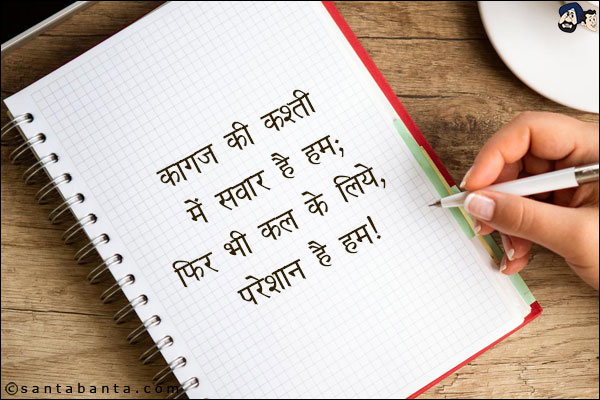 कागज की कश्ती
में सवार है हम;
फिर भी कल के लिये,
परेशान है हम!
©santabanta.com